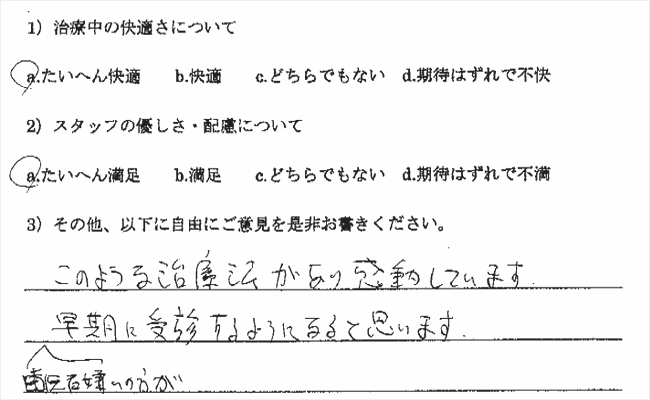 1）治療中の快適さについて
a.たいへん快適　b.快適　c.どちらでもない　d.期待はずれで不快
2）スタッフの優しさ・配慮について
a.たいへん満足　b.満足　c.どちらでもない　d.期待はずれで不満
3）その他、以下に自由にご意見を是非お書きください。
このような治療法があり感動しています.
早期に受診するようになると思います.
歯医者嫌いの方が